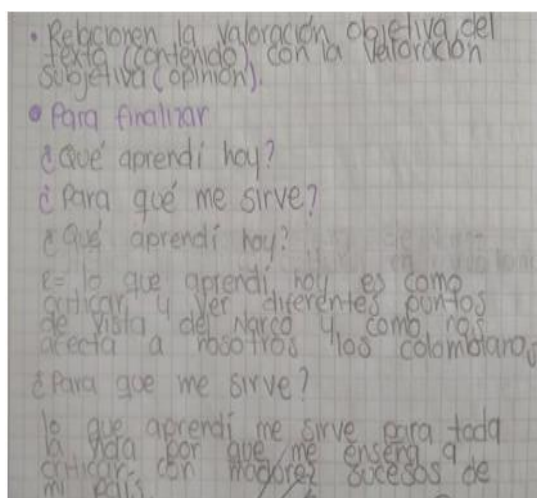 • Relacionen la valoración objetiva del
texto (contenido), con la valoración
subjetiva (opinión).
• Para finalizar
¿Qué aprendí hoy?
¿Para qué me sirve?
¿Qué aprendí hoy?
R= lo que aprendí hoy es como
criticar y ver diferentes puntos
de vista del Narco y como nos
afecta a nosotros los colombianos
¿Para que me sirve?
lo que aprendí me sirve para toda
la vida por que me enseña a
criticar con sucesos de
mi país